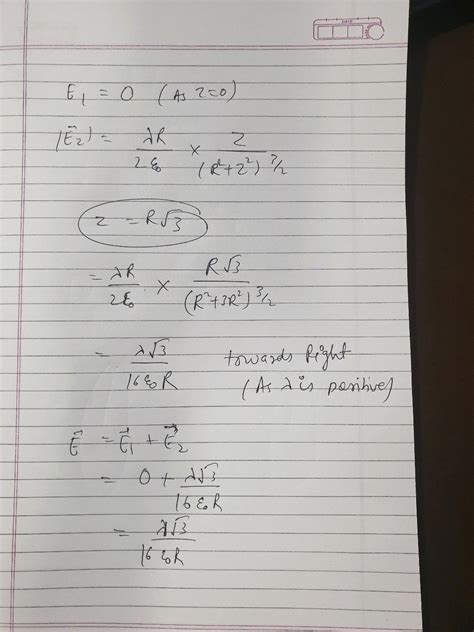 E₁ = 0 (As z=0)
|E⃗₂| = λR/2ε₀ × z/(R²+z²)^3/2
z = R√3
= λR/2ε₀ × R√3/(R²+3R²)^3/2
= λ√3/16ε₀R towards Right
(As λ is positive)
E⃗ = E⃗₁ + E⃗₂
= 0 + λ√3/16ε₀R
= λ√3/16ε₀R